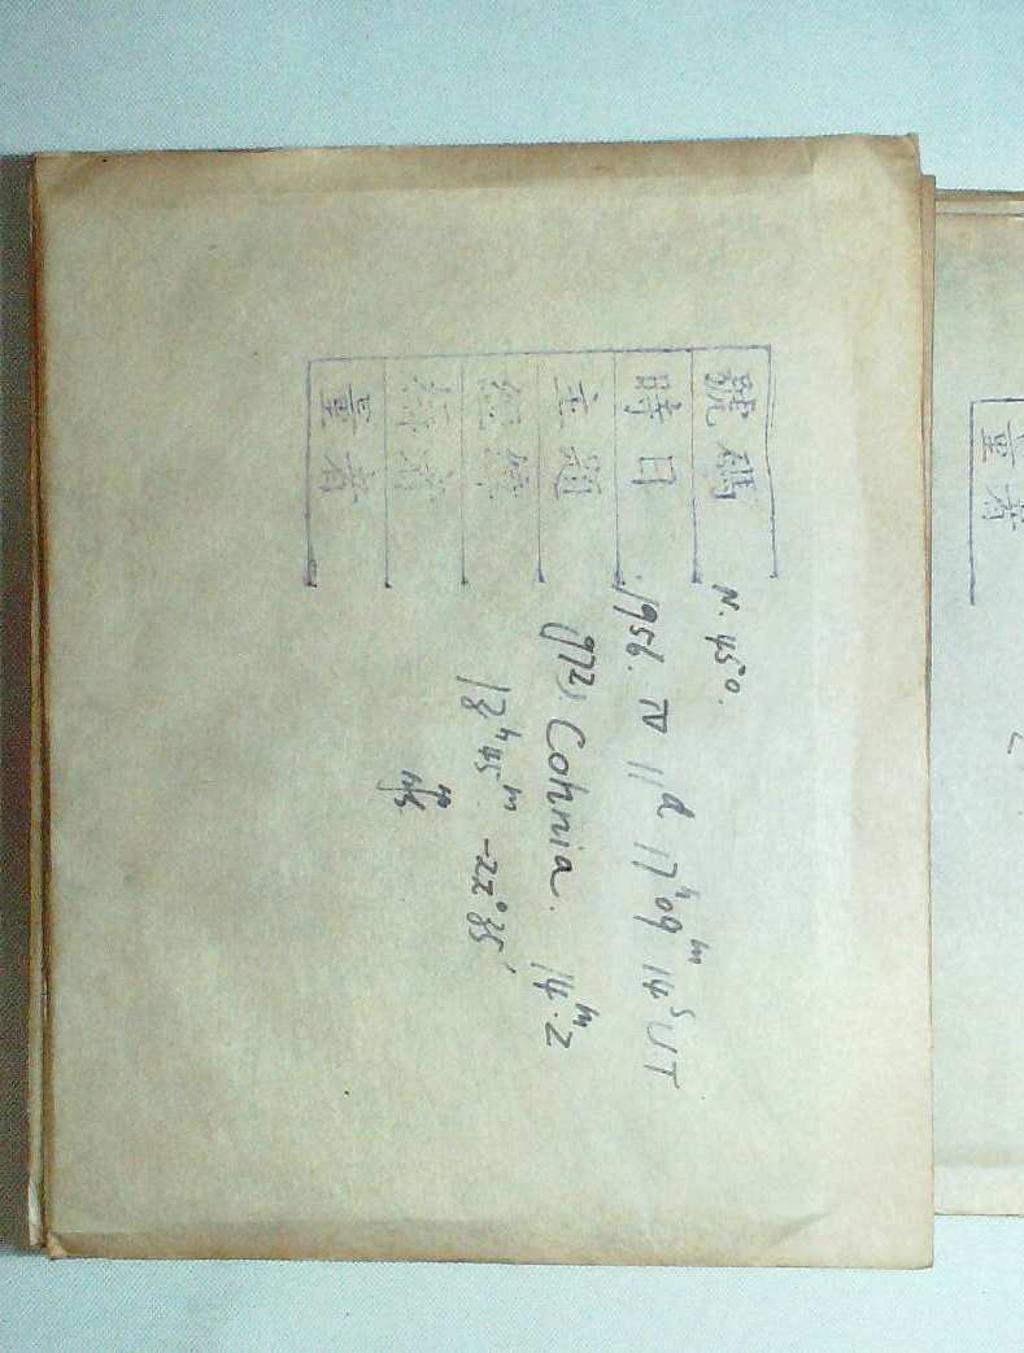 號碼 N. 450.
時日 1956. IV 11ᵈ 17ʰ09ᵐ 14ˢ UT
主題 (972) Cohnia. 14ᵐ.2
經緯 13ʰ45ᵐ -22°35′
量者
量者